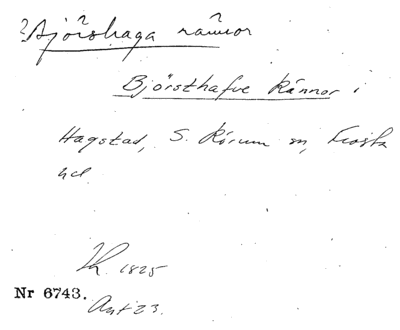 ?Björshaga rännor
Björsthafve Rännor i
Hagstad, S. Rörum sn, Frosta
hd
Lk. 1825
Nr 6743.
Akt 23.